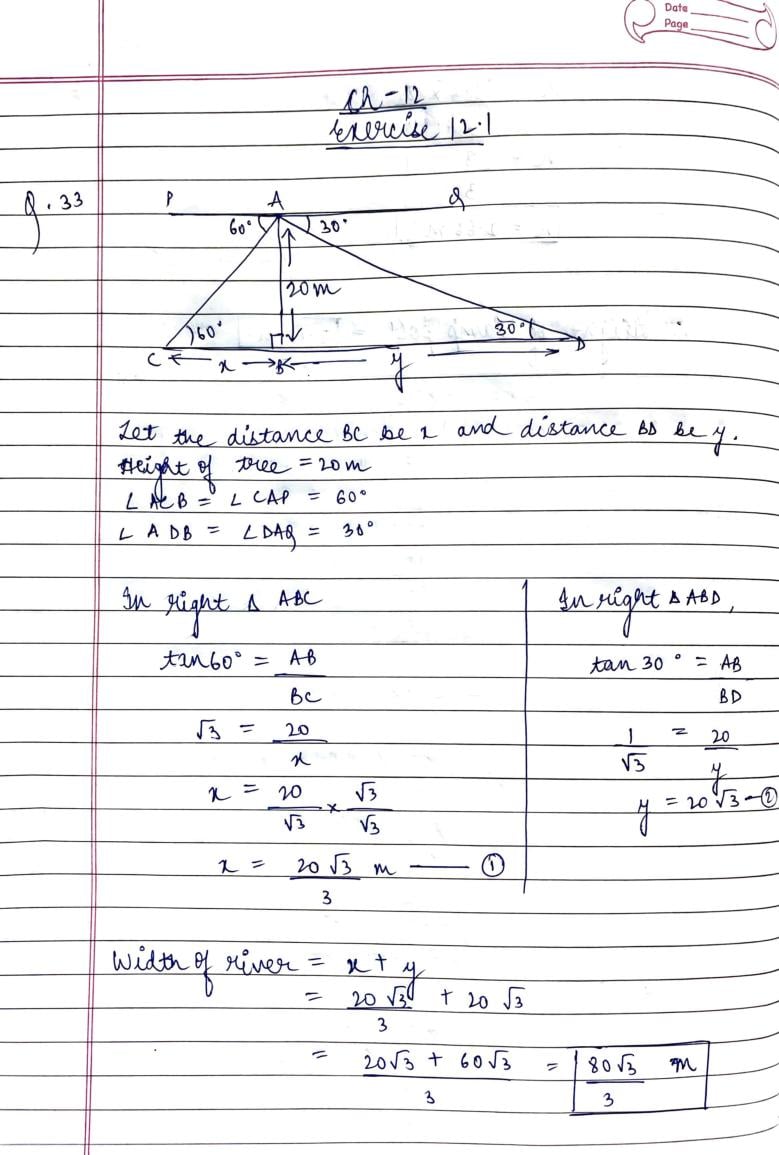 Date
Page
Ch - 12
Exercise 12.1
Q. 33
P A Q
60° 30°
20 m
60° 30°
C x B y D
Let the distance BC be x and distance BD be y.
Height of tree = 20 m
∠ ACB = ∠ CAP = 60°
∠ ADB = ∠DAQ = 30°
In right Δ ABC
tan60° = AB
BC
√3 = 20
x
x = 20 × √3
√3 √3
x = 20 √3 m —— ①
3
In right Δ ABD,
tan 30° = AB
BD
1 = 20
√3 y
y = 20√3 - ②
Width of river = x + y
= 20 √3 + 20 √3
3
= 20√3 + 60√3 = 80√3 m
3 3